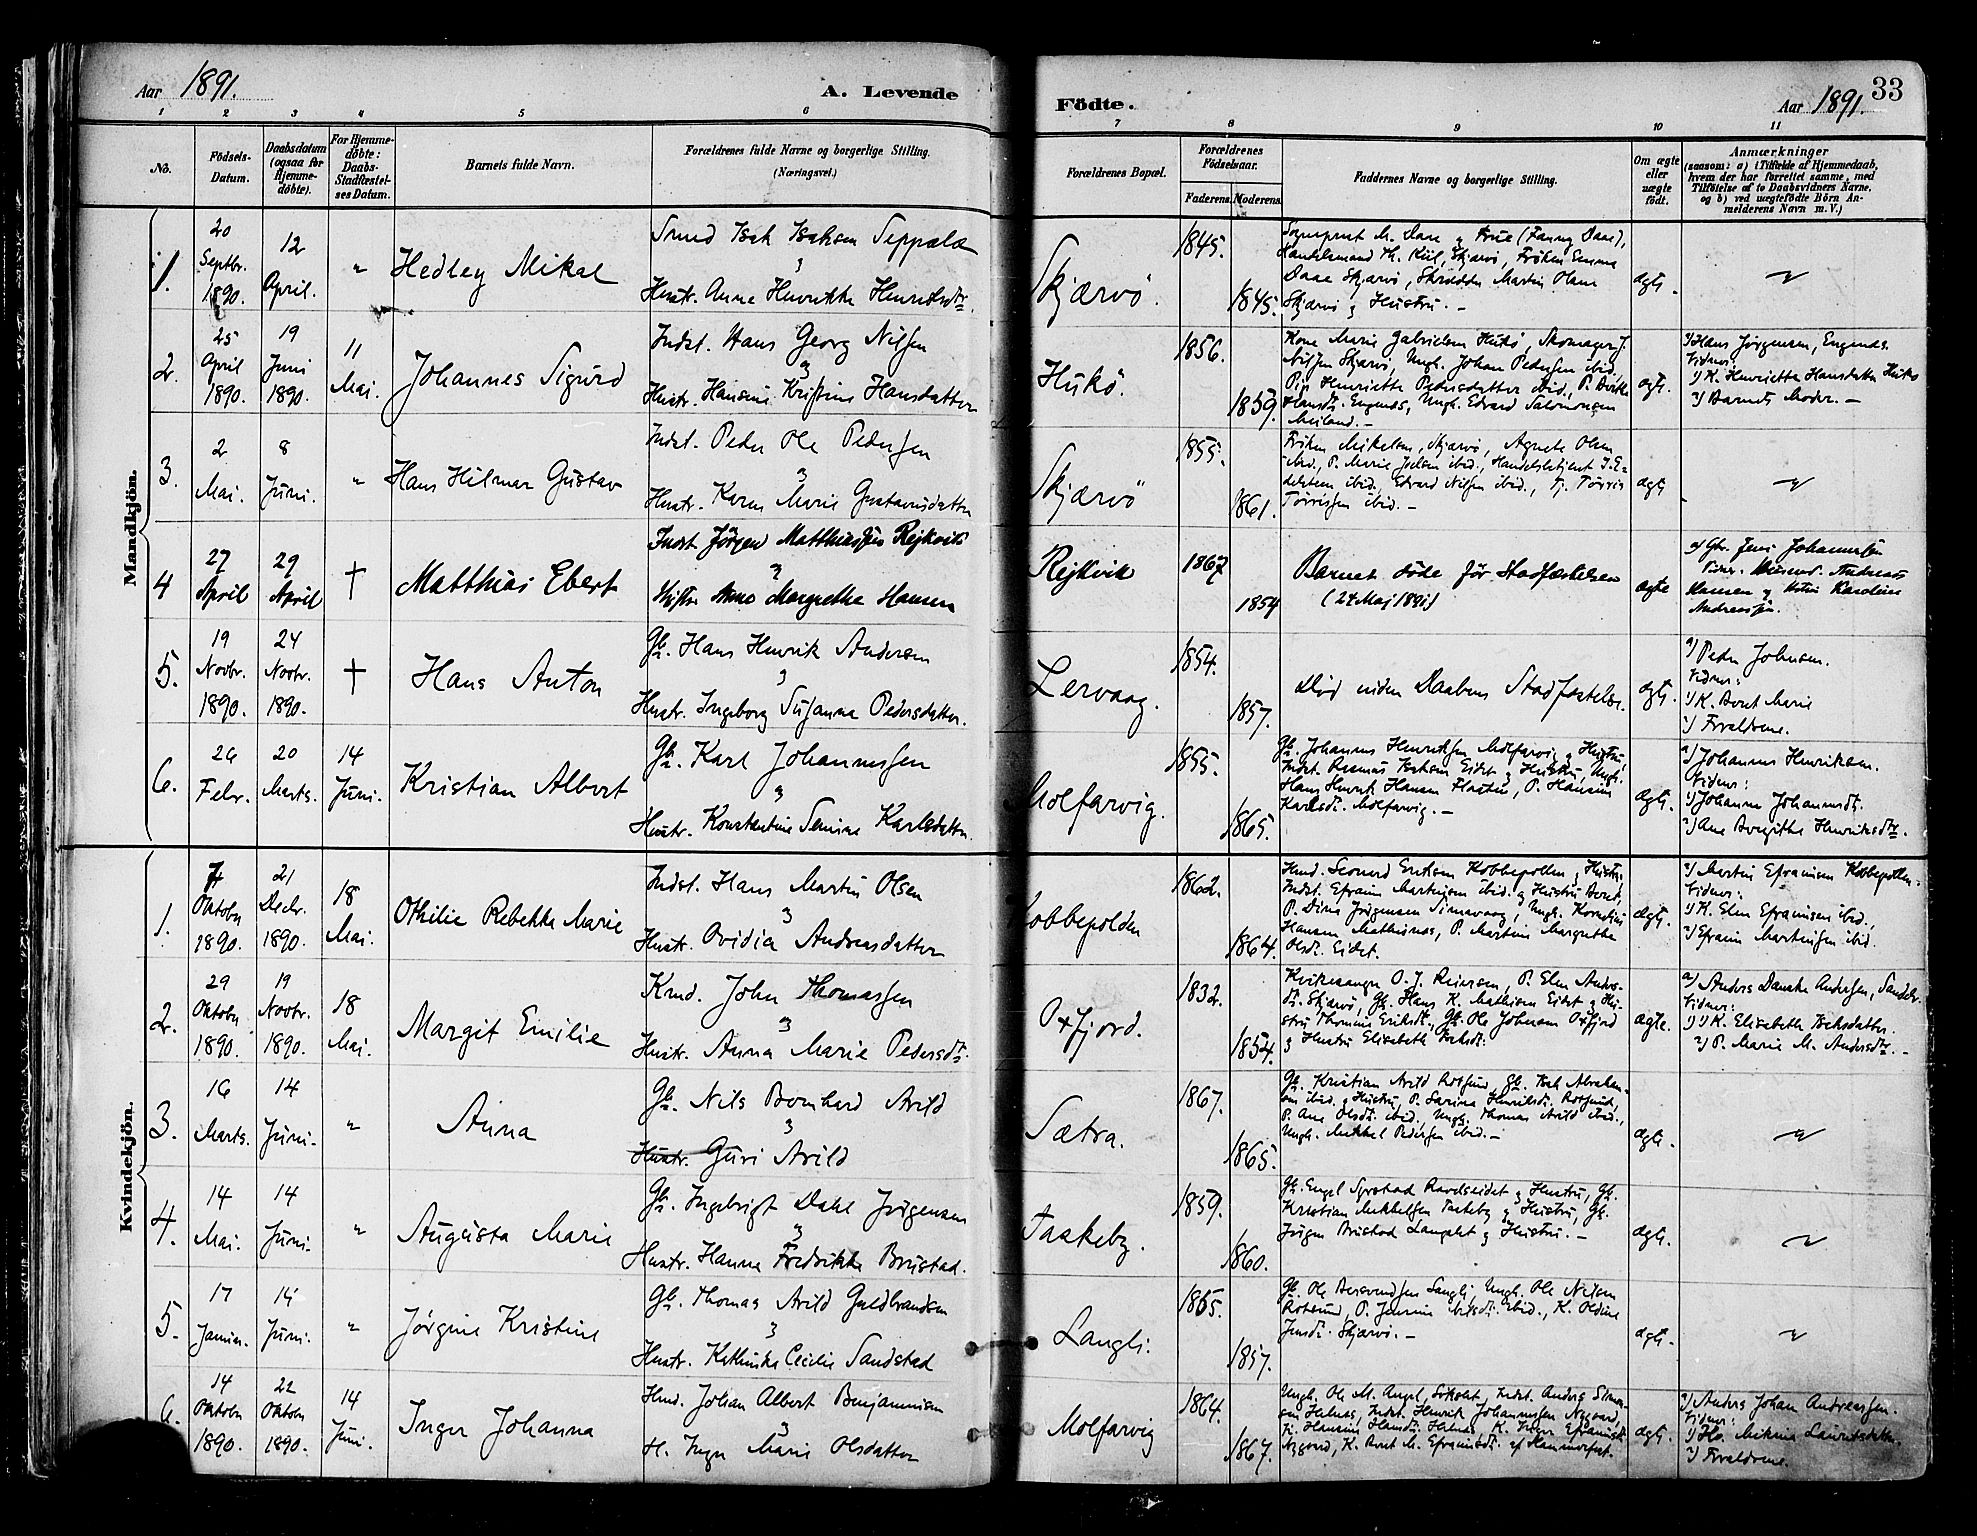 Aar 1891.
A. Levende
Födte.
Aar 1891.
33
1 2 3 4 5 6 7 8 9 10 11
No.
Födsels-Datum.
Daabsdatum (ogsaa for Hjemme-döbte).
For Hjemme-döbte: Daabs-Stadfæstel-ses Datum.
Barnets fulde Navn.
Forældrenes fulde Navne og borgerlige Stilling.
(Næringsvei.)
Forældrenes Bopæl.
Forældrenes Födselsaar.
Faderens.
Moderens.
Faddernes Navne og borgerlige Stilling.
Om ægte eller uægte födt.
Anmærkninger
(saasom: a) i Tilfælde af Hjemmedaab, hvem der har forrettet samme, med Tilföielse af to Daabsvidners Navne, og b) ved uægtefödte Börn An-melderens Navn m. V.)
Mandkjön.
1. 20 Septbr. 1890. 12 April. " Hedley Mikal
Smed Isak Isaksen Seppälä
Hustr. Anna Henrikke Henriksdtr.
Skjærvö. 1845. 1845.
Sogneprest M. Daae og Frue (Fanny Daae),
Handelsmand Th. Kiil, Skjærvö, Fröken Emma
Daae Skjærvö, Skrædder Martin Hans
Skjærvö og Hustru. -
ægte.
2. 25 April 1890. 19 Juni 1890. 11 Mai. Johannes Sigurd
Indst. Hans Georg Nilsen
Hustr. Hansine Kristine Hansdatter
Hukö. 1856. 1859.
Kone Marie Gabrielsen Hukö, Skomager J.
Nilsen Skjærvö, Ungk. Johan Pedersen ibid.,
Pige Henriette Pedersdatter ibid., P. Berith
Hansdt. Engenes, Ungk. Edvard Salomonsen
Meiland. -
ægte.
a) Hans Jörgensen, Engenes.
Vidner:
1) K. Henriette Hansdatter Hukö
2) Barnets Moder. -
3. 2 Mai. 8 Juni. " Hans Hilmar Gustav
Indst. Peder Ole Pedersen
Hustr. Karen Marie Gustavusdatter
Skjærvö 1855. 1861.
Fröken Mikelsen, Skjærvö, Agnete Olsen
ibid., P. Marie Joelsen ibid., Handelsbetjent I. E-
delsteen ibid. Edvard Nilsen ibid., Tj. Törris
Törrissen ibid. -
ægte
4 27 April 29 April † Matthias Ebert
Indst Jörgen Matthiassen Rejkvik
Hustru Anne Margrethe Hansen
Rejkvik 1867 1854
Barnet döde för Stadfæstelsen
(24 Maj 1891)
ægte
a) Gbr. Jens Johannessen
Vidner. Andreas
Hansen og Karoline
Andreassen.
5. 19 Novbr. 1890. 24 Novbr. 1890. † Hans Anton
Gb. Hans Henrik Andersen
Hustr. Ingeborg Susanna Pedersdatter.
Lervaag. 1854. 1857.
Död uden Daabens Stadfæstelse.
ægte.
a) Peder Johnsen.
Vidner:
1) K. Beret Marie
2) Forældrene.
6. 26 Febr. 20 Marts. 14 Juni. Kristian Albert
Gb. Karl Johannessen
Hustr. Konstantine Semine Karlsdatter
Molfarvig. 1855. 1865.
Gb. Johannes Henriksen Molfarvig og Hustru,
Indst. Rasmus Isaksen Eidet og Hustru, Ungk.
Hans Henrik Hansen, P. Hansine
Karlsdt. Molfarvig. -
ægte.
a) Johannes Henriksen.
Vidner:
1) Johanna Johannesdt.
2) Ane Bergithe Henriksdtr.
Kvindekjön.
1. 7 Oktober 1890. 21 Decbr. 1890. 18 Mai. Othilie Rebekka Marie
Indst. Hans Martin Olsen
Hustr. Ovidia Andreasdatter
Kobbepolden 1862. 1864.
Hmd. Leonard Eriksen Kobbepollen og Hustru,
Indst. Efraim Martinsen ibid. og Hustru Beret,
P. Dina Jörgensen Simavaag, Ungk. Kornelius
Hansen Mathisnes, P. Martine Margrethe
Olsdt. Eidet.
ægte.
a) Martin Efraimsen Kobbepollen.
Vidner:
1) K. Elen Efraimsen ibid.
2) Efraim Martinsen ibid.
2. 29 Oktober 1890. 19 Novbr. 1890. 18 Mai. Margit Emilie
Kmd. John Thomassen
Hustr. Anna Marie Pedersdt.
Oxfjord. 1832. 1854.
Kirkesanger O. J. Reiersen, P. Elen Anders-
dt. Skjærvö, Gb. Hans K. Mathisen Eidet og Hu-
stru Thomine Eriksdt., Gb. Ole Johnsen Oxfjord
og Hustru Elisabeth Isaksdt.
ægte.
a) Anders Danske Andersen,
Vidner:
1) K. Elisabeth Isaksdatter.
2) P. Marie M. Andersdtr. -
3. 16 Marts. 14 Juni. " Anna
Gb. Nils Bernhard Arild
Hustr. Guri Arild
Sætra. 1867. 1865.
Gb. Kristian Arild Rotsund, Gb. Isak Abraham-
sen ibid. og Hustru, P. Sarina Henriksdt. Rotsund,
P. Ane Olsdt. ibid., Ungk. Thomas Arild ibid.,
Ungk. Mikkel Pedersen ibid. -
ægte.
4. 14 Mai. 14 Juni. " Augusta Marie
Gb. Ingebrigt Dahl Jörgensen
Hustr. Hanna Fredrikke Brustad.
Taskeby. 1859. 1860.
Gb. Engel Ravelseidet og Hustru, Gb.
Kristian Mikkelsen Taskeby og Hustru, Gb.
Jörgen Brustad Langslet og Hustru. -
ægte.
5. 17 Januar. 14 Juni. " Jörgine Kristine
Gb. Thomas Arild Guldbrandsen
Hustr. Kathinka Cecilie Sandstad
Langli. 1865. 1857.
Gb. Ole Langli, Ungk. Ole Nilsen
Rotsund, P. Jensine Nilsdt. ibid., K. Oldine
Jensdt. Skjærvö. -
ægte.
6. 14 Oktober 1890. 22 Oktober 1890. 14 Juni. Inger Johanna
Hmd. Johan Albert Benjaminsen
H. Inger Marie Olsdatter
Molfarvig 1864. 1867.
Ungk. Ole M. Angel, Indst. Anders Simon-
sen Helnes, Indst. Henrik Johannessen Nygaard,
Tj. Hansine Hansdt. Helnes, K. Inger Efraimsdt.
Nygaard, K. Beret M. Efraimsdt. af Hammerfest.
ægte.
a) Anders Johan Andreassen.
Vidner:
1) Mikina Lauritsdatter.
2) Forældrene.